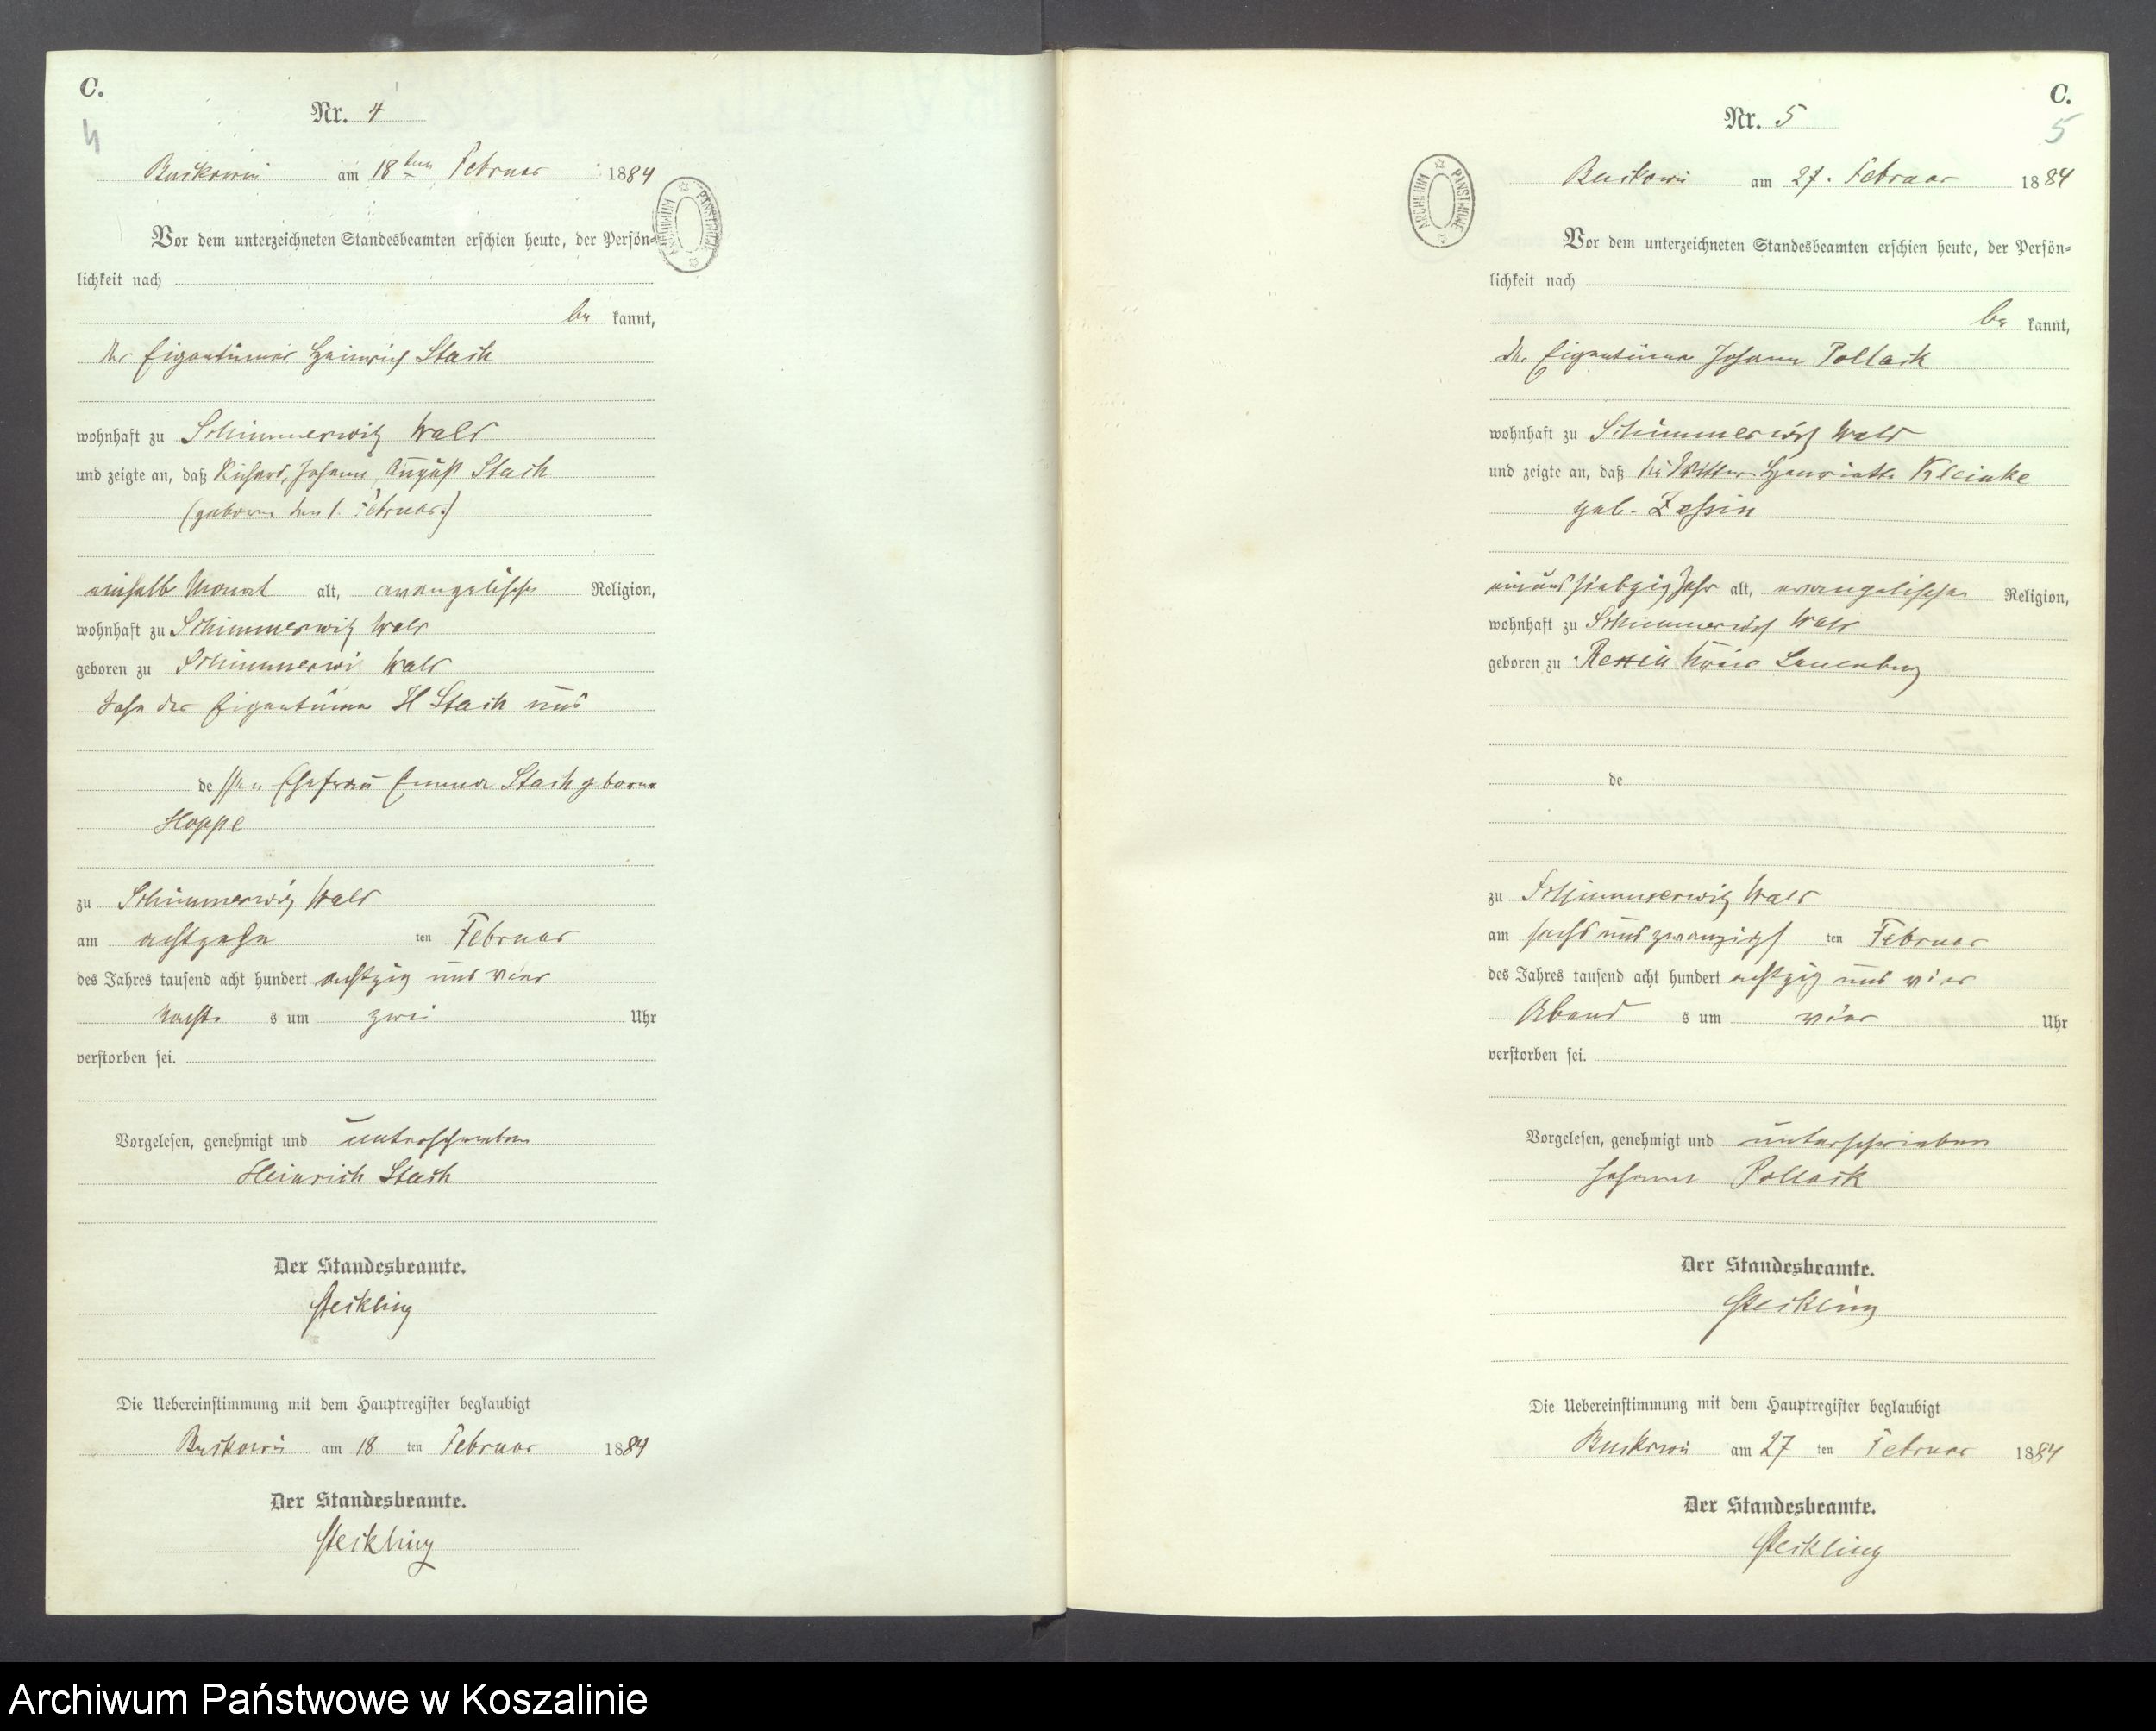 C.
4
Nr. 4
Buckowin am 18ten Februar 1884
ARCHIWUM PAŃSTWOWE
Vor dem unterzeichneten Standesbeamten erschien heute, der Persön-
lichkeit nach
be kannt,
der Eigentümer Heinrich Stach
wohnhaft zu Schimmerwitz Wald
und zeigte an, daß Richard, Johann, August Stach
(geboren den 1. Februar.)
einhalb Monat alt, evangelischer Religion,
wohnhaft zu Schimmerwitz Wald
geboren zu Schimmerwi Wald
Sohn des Eigentümer H Stach und
de ssen Ehefrau Emma Stach geborne
Hoppe
zu Schimmerwitz Wald
am achtzehn ten Februar
des Jahres tausend acht hundert achtzig und vier
Nacht s um zwei Uhr
verstorben sei.
Vorgelesen, genehmigt und unterschrieben
Heinrich Stach
Der Standesbeamte.
Steckling
Die Uebereinstimmung mit dem Hauptregister beglaubigt
Buckowin am 18 ten Februar 1884
Der Standesbeamte.
Steckling
C.
5
Nr. 5
Buckowin am 27. Februar 1884
ARCHIWUM PAŃSTWOWE
Vor dem unterzeichneten Standesbeamten erschien heute, der Persön-
lichkeit nach
be kannt,
der Eigentümer Johann Pollack
wohnhaft zu Schimmerwitz Wald
und zeigte an, daß die Wittwe Henriette Kleinke
geb. Zessin
einundsiebzig Jahr alt, evangelischer Religion,
wohnhaft zu Schimmerwitz Wald
geboren zu Kreis Lauenburg
de
zu Schimmerwitz Wald
am sechs und zwanzigst ten Februar
des Jahres tausend acht hundert achtzig und vier
Abend s um vier Uhr
verstorben sei.
Vorgelesen, genehmigt und unterschrieben
Johann Pollack
Der Standesbeamte.
Steckling
Die Uebereinstimmung mit dem Hauptregister beglaubigt
Buckowin am 27 ten Februar 1884
Der Standesbeamte.
Steckling
Archiwum Państwowe w Koszalinie